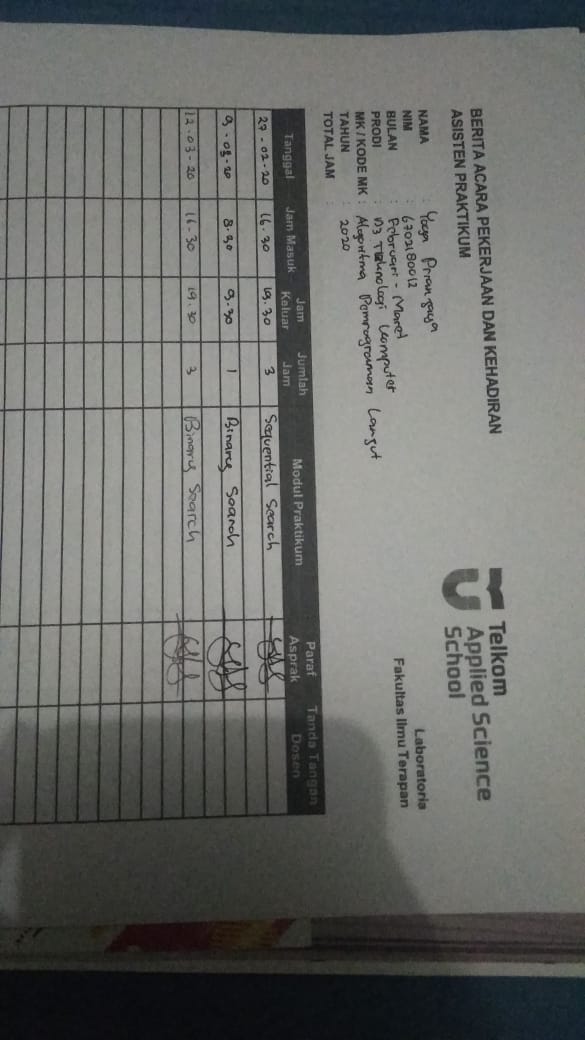 BERITA ACARA PEKERJAAN DAN KEHADIRAN
ASISTEN PRAKTIKUM
Telkom
Applied Science
School
Laboratoria
Fakultas Ilmu Terapan
NAMA : Yoga Priangjaya
NIM : 6702180012
BULAN : Februari - Maret
PRODI : D3 Teknologi Komputer
MK / KODE MK : Algoritma Pemrograman Lanjut
TAHUN : 2020
TOTAL JAM :
Tanggal Jam Masuk Jam Keluar Jumlah Jam Modul Praktikum Paraf Asprak Tanda Tangan Dosen
27-02-20 16.30 19.30 3 Sequential Search
9-03-20 8.30 9.30 1 Binary Search
12-03-20 16-30 19.30 3 Binary Search